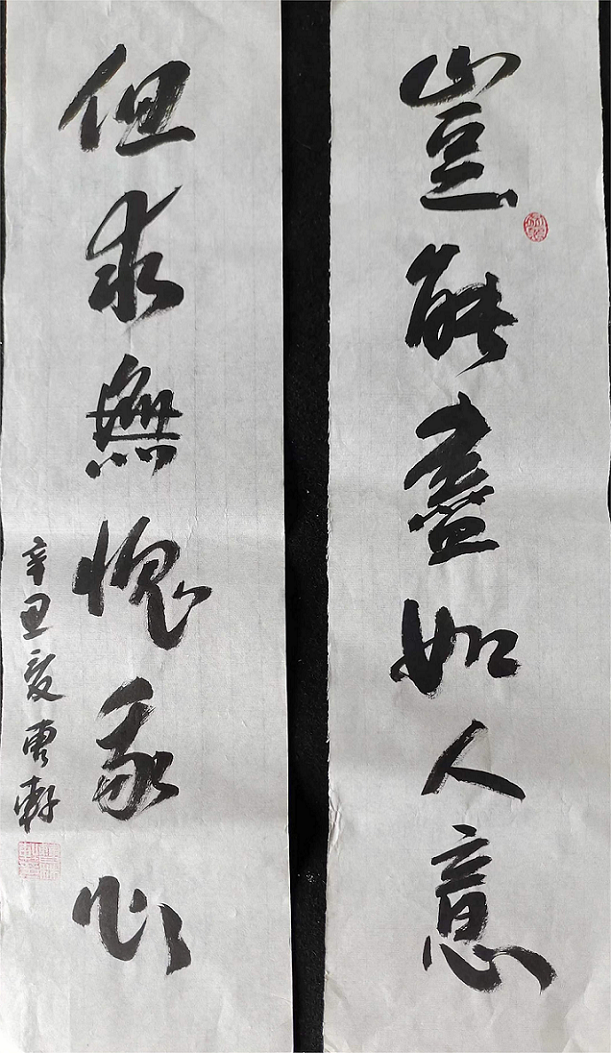 豈能盡如人意
但求無愧我心
辛丑夏雲軒